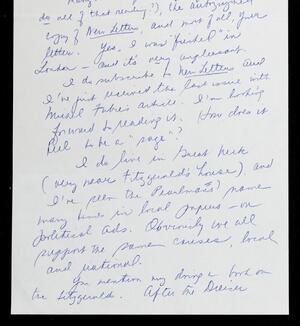 do all of that reading?), the autographed
copy of New Letters, and most of all, your
letter. Yes, I was "frisked" in
London – and it's very unpleasant.
I do subscribe to New Letters and
I've just received the last issue with
Michel Fabre's article. I'm looking
forward to reading it. How does it
feel to be a "sage"?
I do live in Great Neck
(very near Fitzgerald's house), and
I've seen the Pearlmans' name
many times in local papers – on
political ads. Obviously we all
support the same causes, local
and national.
You mention my doing a book on
the Fitzgeralds. After the Dreiser